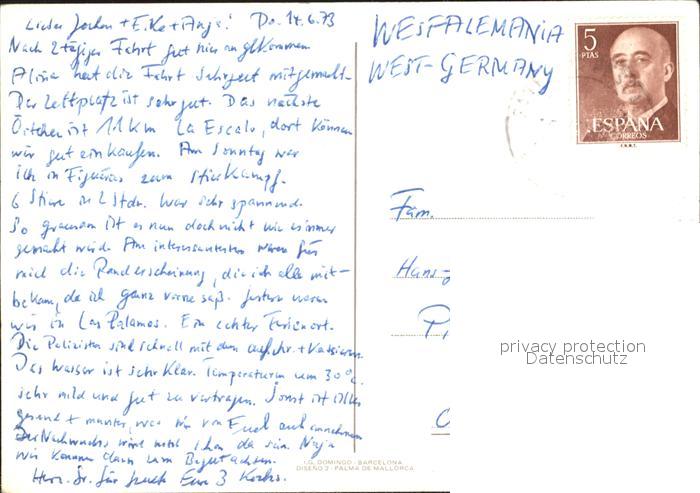 Lieber Jochen + Elke + Anja! Do. 14.6.73
Nach 2tägiger Fahrt gut hier angekommen
hat die Fahrt sehr gut mitgemacht.
Der Zeltplatz ist sehr gut. Das nächste
Örtchen ist 11 Km La Escala, dort können
wir gut einkaufen. Am Sonntag war
ich in Figueras zum Stierkampf.
6 Stiere in 2 Stdn. War sehr spannend.
So grausam ist es nun doch nicht wie es immer
gemacht wird. Am interessantesten waren für
mich die Randerscheinung, die ich alle mit-
bekam, da ich ganz vorne saß. Gestern waren
wir in Las Palamos. Ein echter Ferienort.
Die Polizisten sind schnell mit dem aufschr. + Kassieren.
Das Wasser ist sehr Klar. Temperaturen um 30°C.
sehr mild und gut zu vertragen. Sonst ist alles
gesund + munter, was wir von Euch auch annehmen
Der Nachwuchs wird wohl schon da sein. Naja
wir kommen dann zum Begutachten.
Herz. Gr. für heute Eure 3
WESFALEMANIA
WEST-GERMANY
5
PTAS
ESPAÑA
CORREOS
F.N.M.T.
Fam.
Hans-
privacy protection
Datenschutz
I.G. DOMINGO - BARCELONA
DISEÑO 2 - PALMA DE MALLORCA